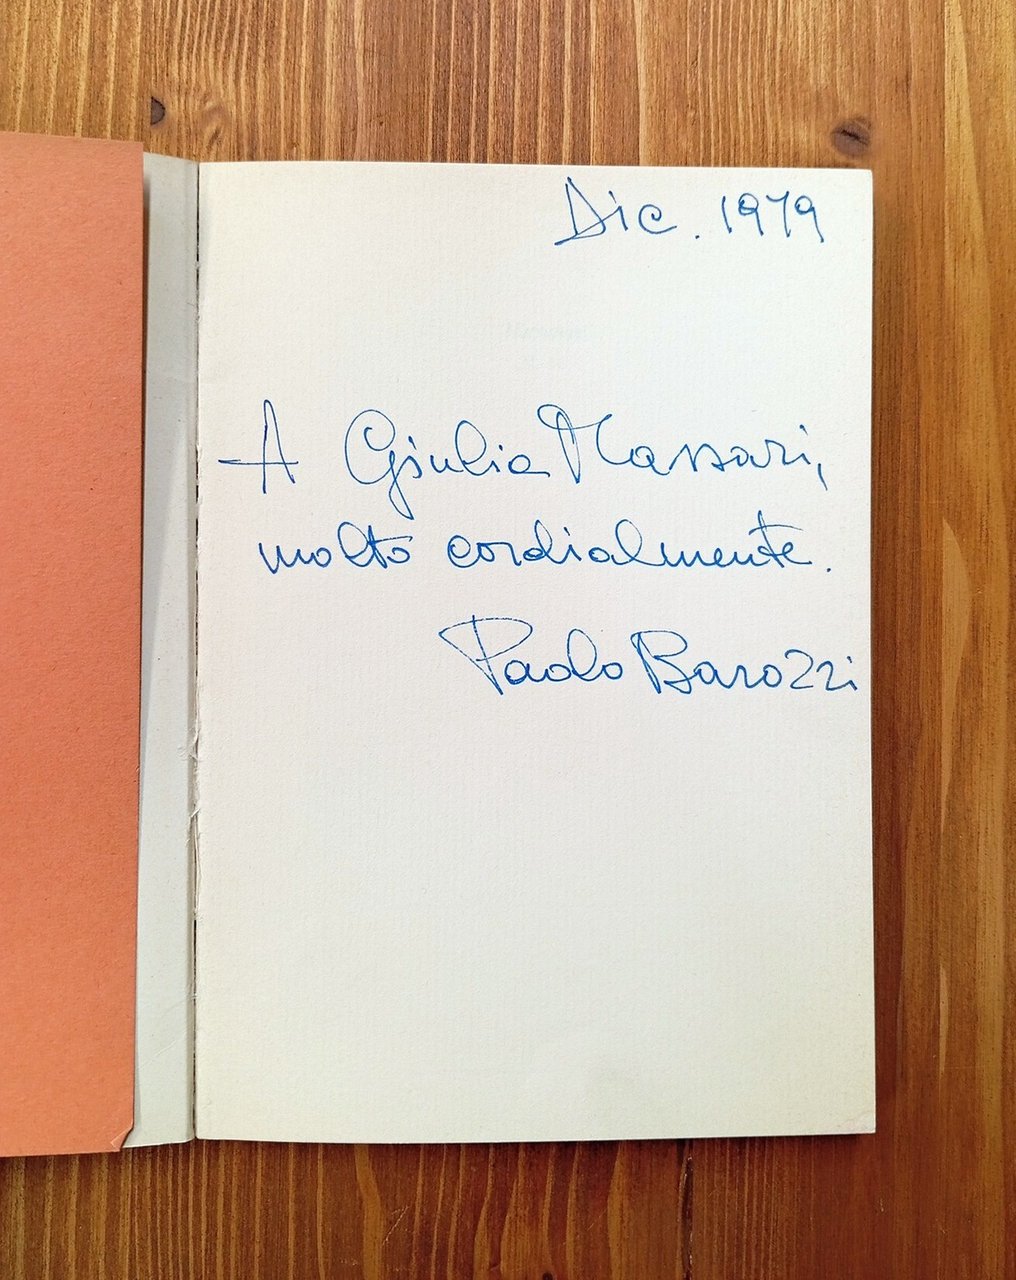 Dic. 1979
A Giulia Massari,
molto cordialmente.
Paolo Barozzi